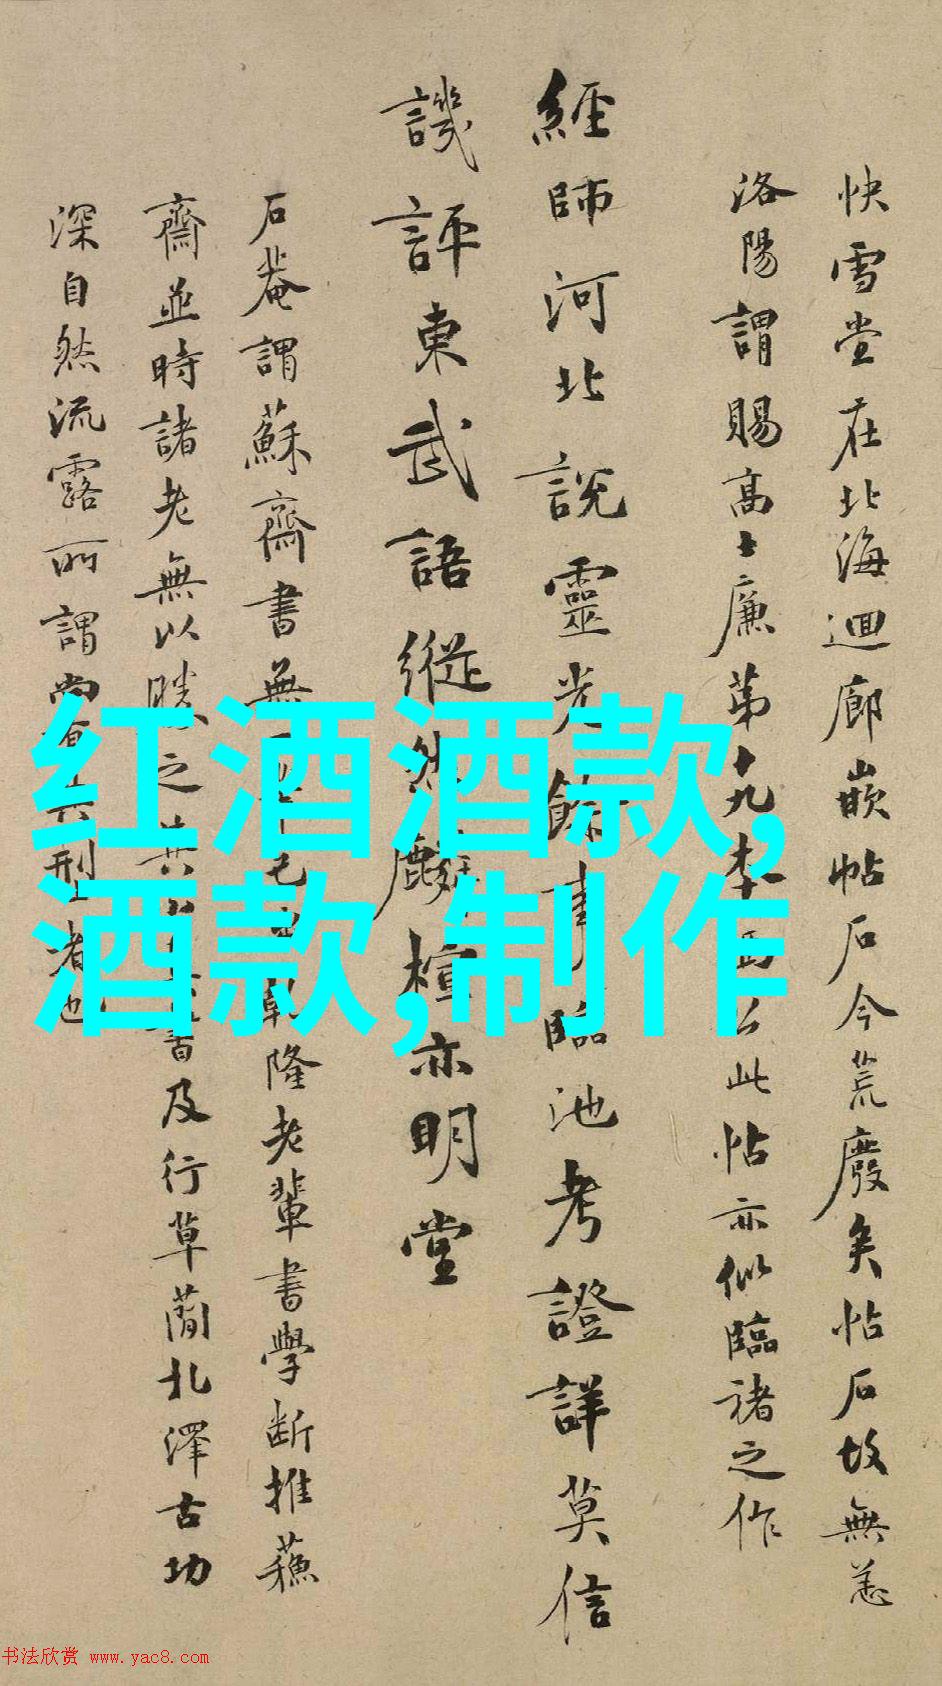 快雪堂在北海迴廊嵌帖石今荒廢矣帖石故無恙
洛陽謂賜高士廉第十九李此帖亦似臨諸之作
經師河北說靈光餘事臨池考證詳莫信
譏評東武語縱然癡亦明堂
石菴謂蘇齋書無隆老輩書學斷推蘇
齋並時諸老無以勝之其書及行草蘭北澤古功
深自然流露所謂尚型者也
红酒酒款,
酒款,制作
书法欣赏 www.yac8.com